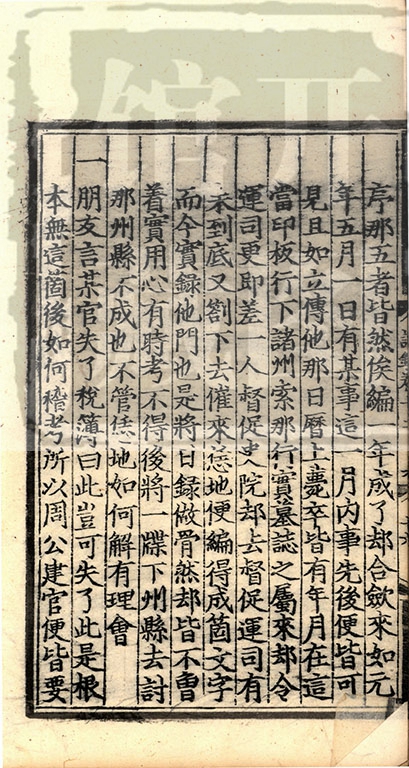 序那五者皆然俟編一年成了却合斂來如元
年五月一日有某事這一月内事先後便皆可
見且如立傳他那日曆上薨卒皆有年月在這
當印板行下諸州索那行實墓誌之屬來却令
運司更即差一人督促史院却去督促運司有
未到底又劄下去催來恁地便編得成箇文字
而今實録他門也是將日録做骨然却皆不曽
着實用心有時考不得後將一牒下州縣去討
那州縣不成也不管恁地如何解有理會
一朋友言某官失了稅簿曰此豈可失了此是根
本無這箇後如何稽考所以周公建官便皆要